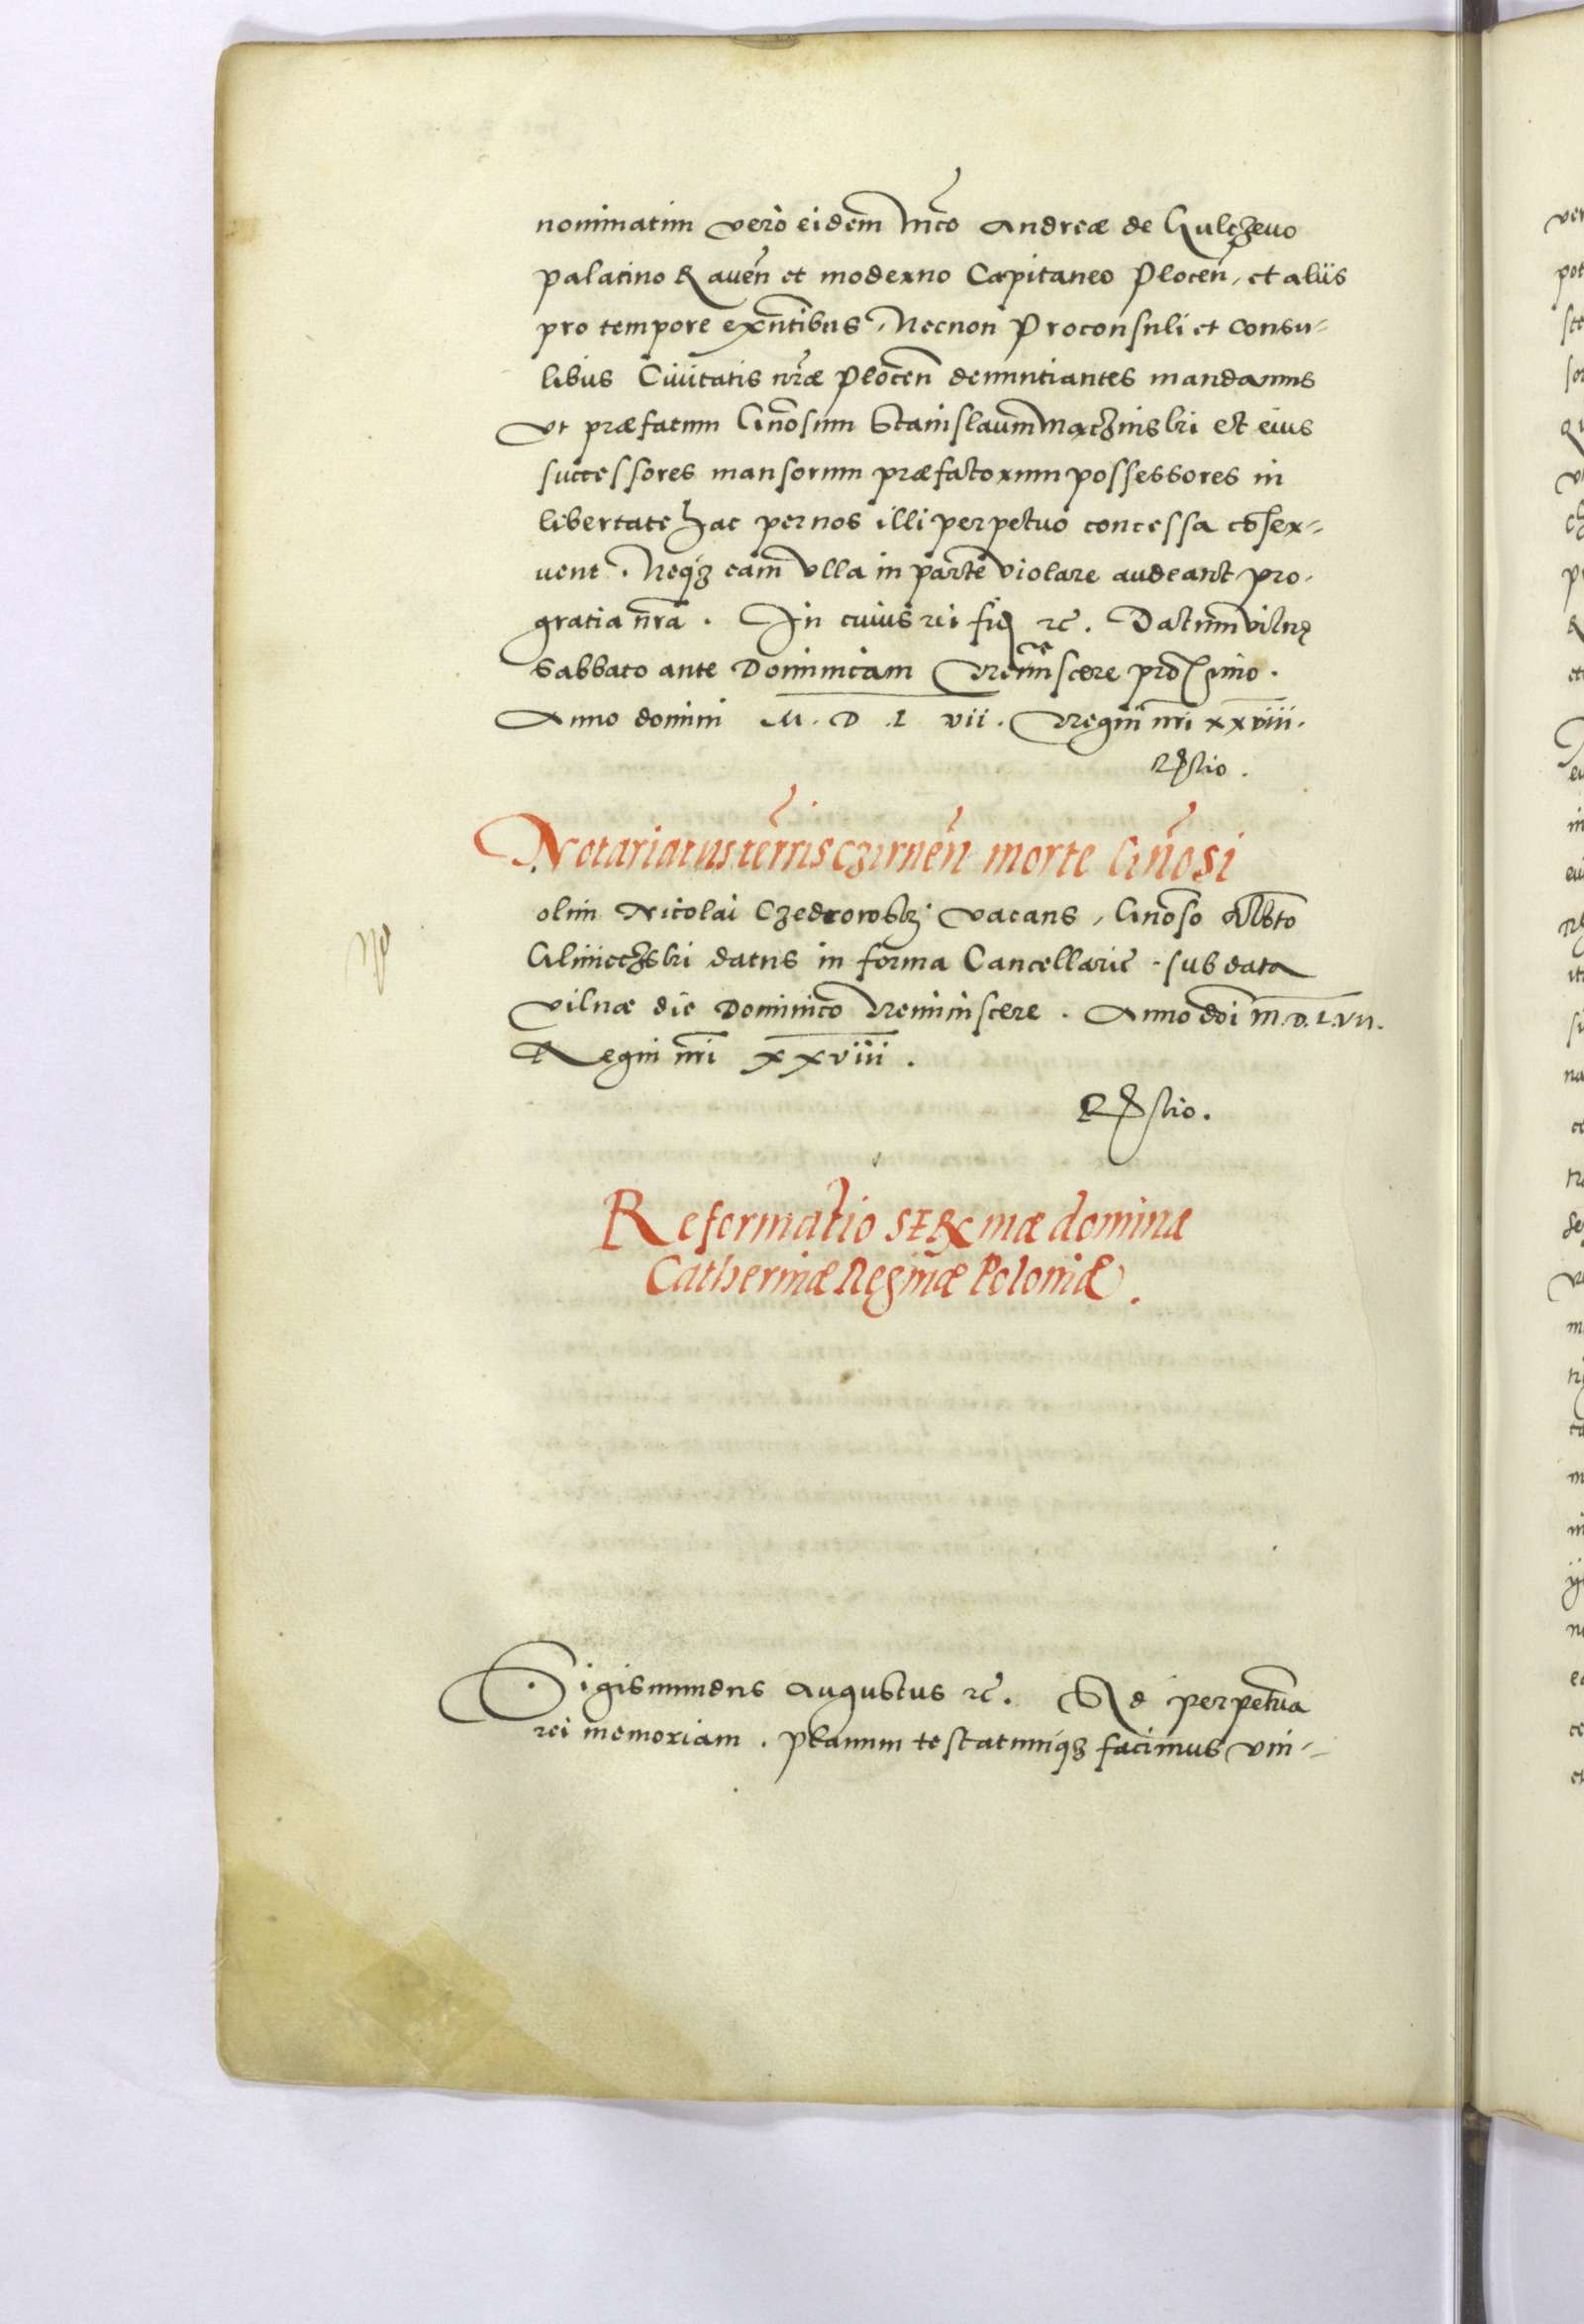 nominatim verò eidem Mco Andreæ de Gulczeuo
palatino Rauen et moderno Capitaneo Plocen, et aliis
pro tempore exntibus, Necnon Proconsuli et Consu-
libus Ciuitatis nræ Plocen denuntiantes mandamus
Vt præfatum Gnosum Stanislaum Maczinski et eius
successores mansorum præfatorum possessores in
libertate hac per nos illi perpetuo concessa coser-
uent. Neqz eam vlla in parte violare audeant pro
gratia nra. In cuius rei fid rc. Datum vilnę
Sabbato ante Dominicam Reminiscere proximo.
Anno domini M. D. L vii. Regni nri xxviii.
Rstio.
Notariatus terris czirnen morte Gnosi
olim Nicolai vacans, Gnoso Albto
datus in forma Cancellarie. sub data
Vilnæ die Dominico Reminiscere. Anno doi M.D.L.VII.
Regni nri xxviii.
Rstio.
Reformatio SERmæ dominæ
Catherinæ Reginæ Poloniæ.
Sigismundus Augustus rc. Ad perpetua
rei memoriam. Planum testatumqz facimus vni-